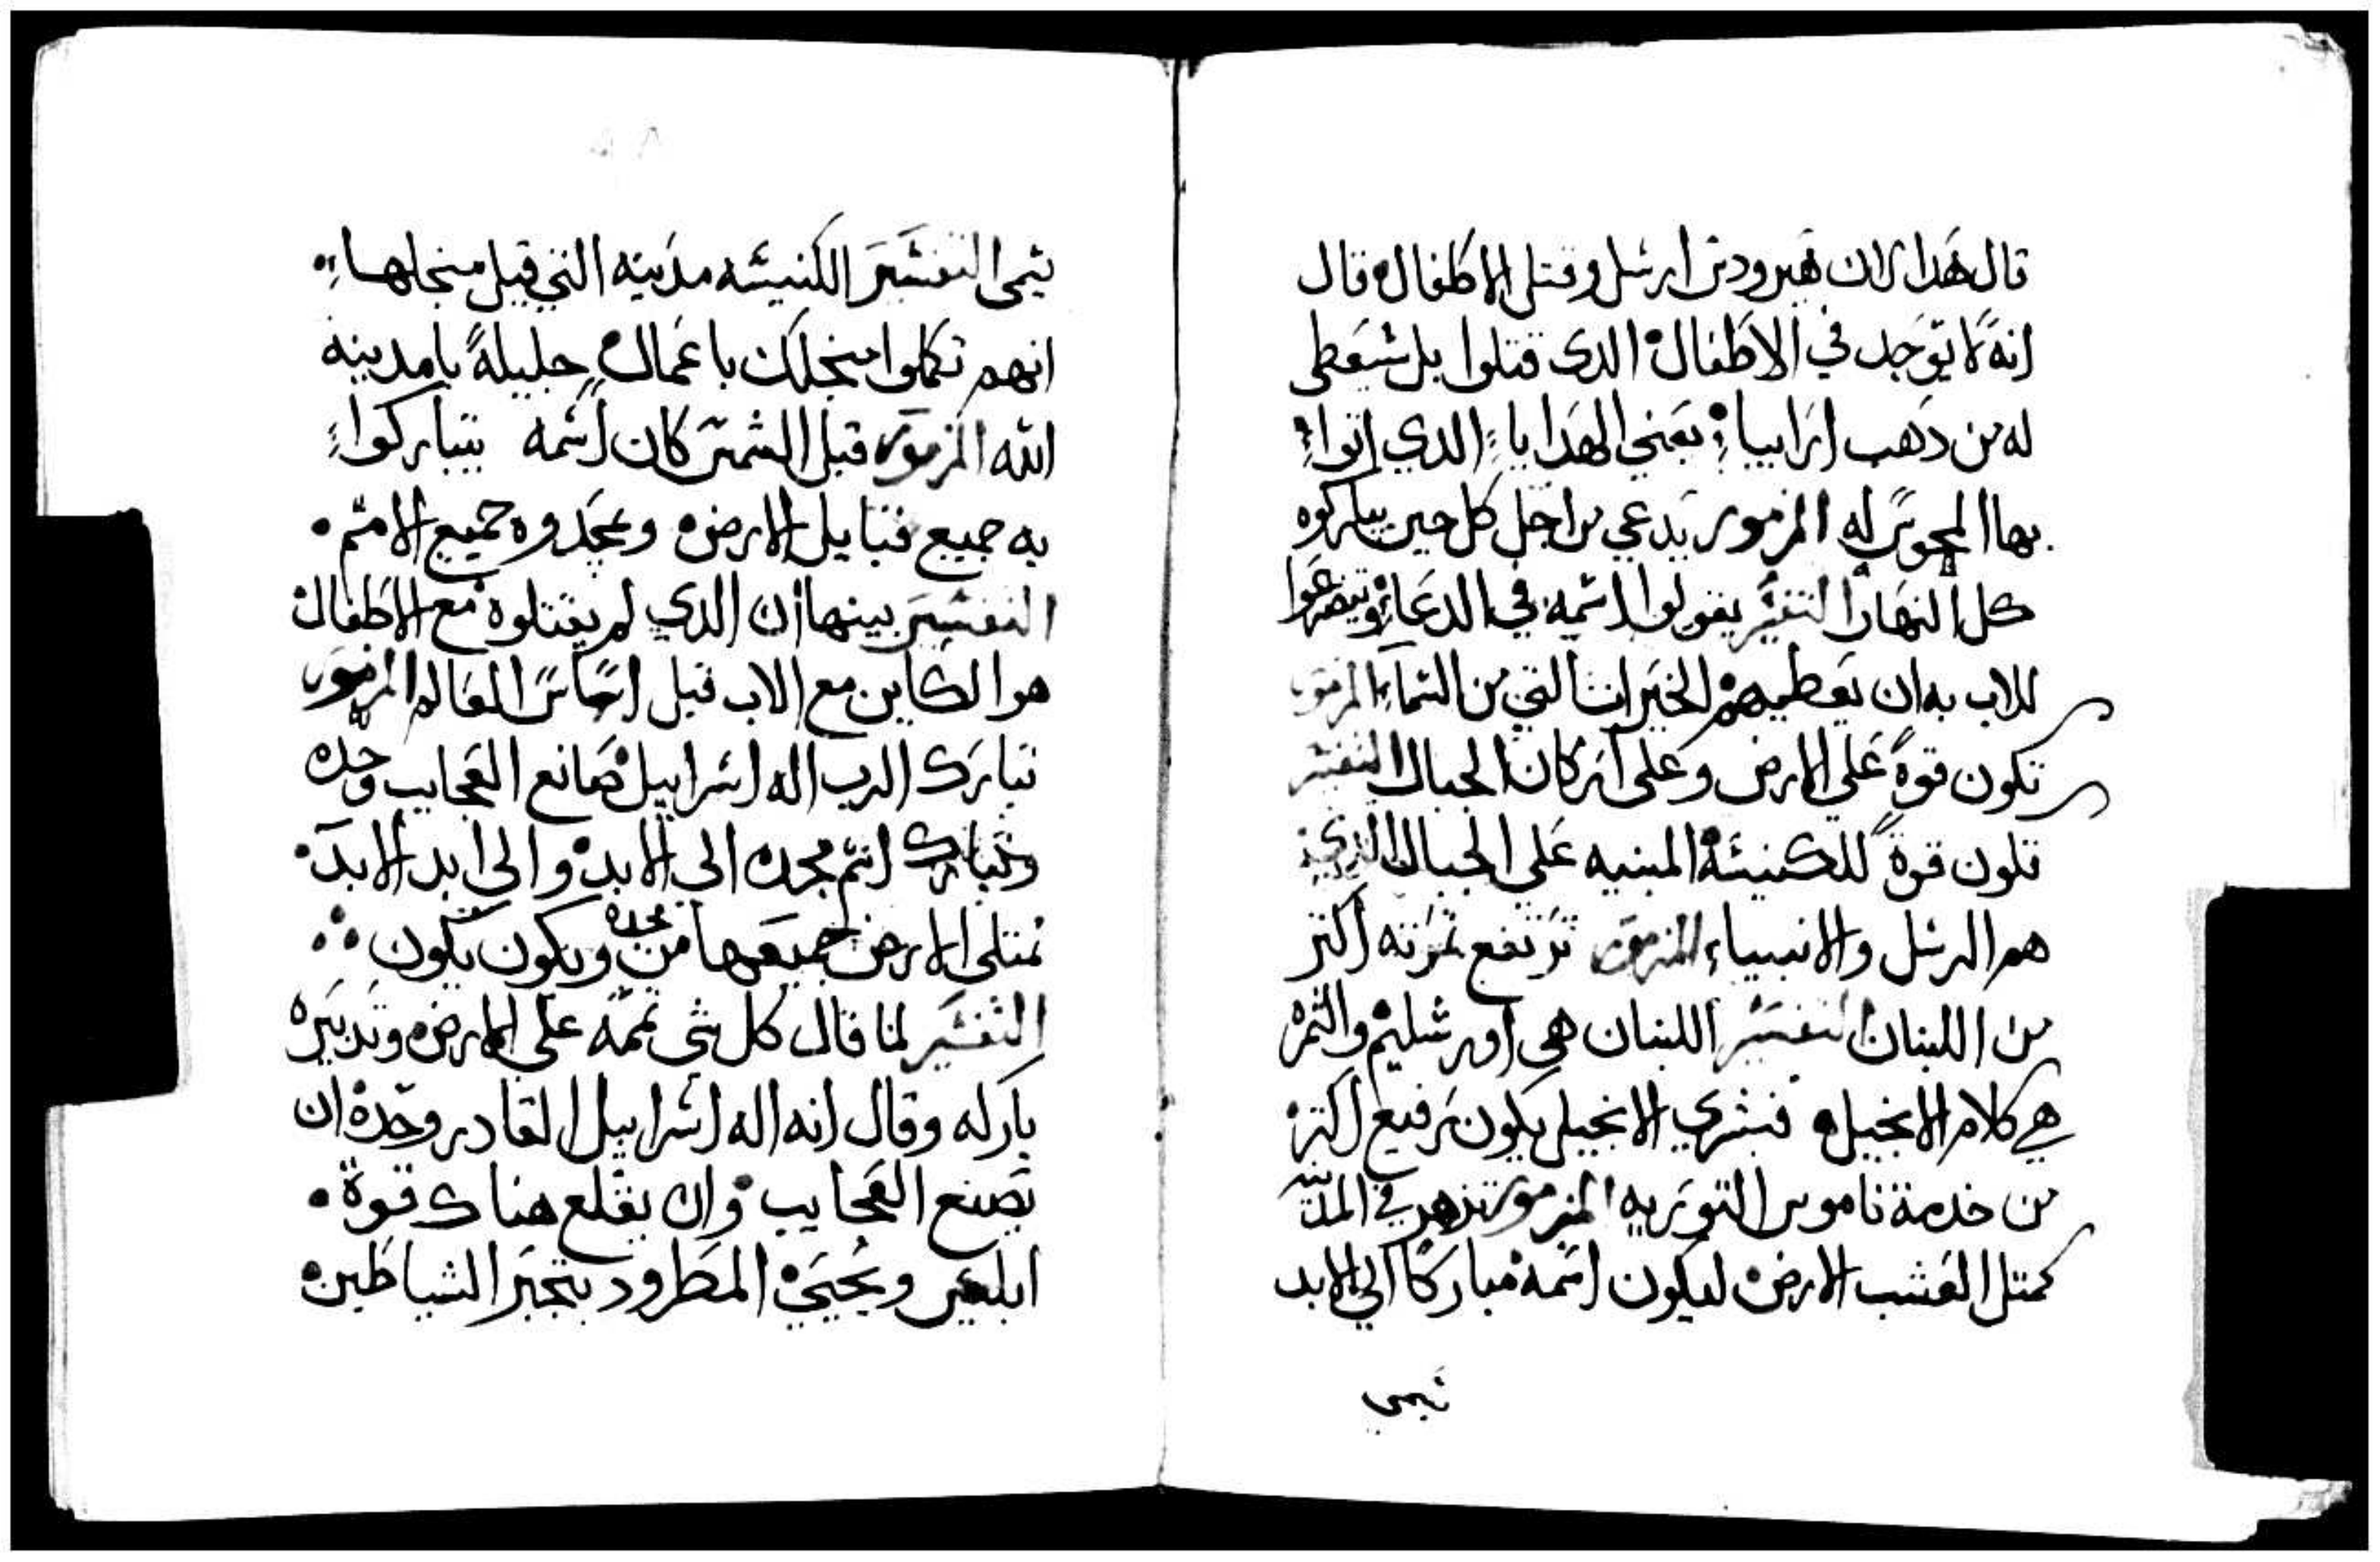 قال هدا لان هيرودس ارسل وقتل الاطفال قال
انه لا يوجد في الاطفال الدى قتلوا بل سيعطى
له من دهب ارابيا يعني الهدايا الدي اتوا
بها المجوس له المزمور يدعي من اجل كل حين يباركوه
كل النهار التفسير يقولوا اسمه في الدعا ويتضرعوا
للاب به ان يعطيهم الخيرات التي من السماء المزمور
تكون قوة على الارض وعلى اركان الجبال التفسير
تكون قوة للكنيسة المبنيه على الجبال الذي
هم الرسل والانبياء المزمور ترتفع ثمرته اكتر
من اللبنان التفسير اللبنان هى اورشليم والثمرة
هي كلام الانجيل فبشري الانجيل يكون رفيع اكتر
من خدمة ناموس التوريه المزمور تزهر في المدينه
كمتل العشب الارض ليكون اسمه مباركا الي الابد
يسمى
يسمى التفسير الكنيسه مدينه التي قيل من اجلها
انهم تكلموا من اجلك باعمال جليلة يا مدينة
الله المزمور قبل الشمس كان اسمه يتباركوا
به جميع قبايل الارض ويمجدوه جميع الامم
التفسير بينها ان الدي لم يقتلوه مع الاطفال
هوا الكاين مع الاب قبل اساس العالم المزمور
تبارك الرب اله اسراييل صانع العجايب وحده
وتبارك اسم مجده الي الابد والي ابد الابد
تمتلى الارض جميعها من مجده ويكون يكون
التفسير لما قال كل شي تممه على الارض وتدبيره
باركه وقال انه اله اسراييل القادر وحده ان
يصنع العجايب وان يقلع هناك قوة
ابليس ويحيي المطرود بتجبر الشياطين